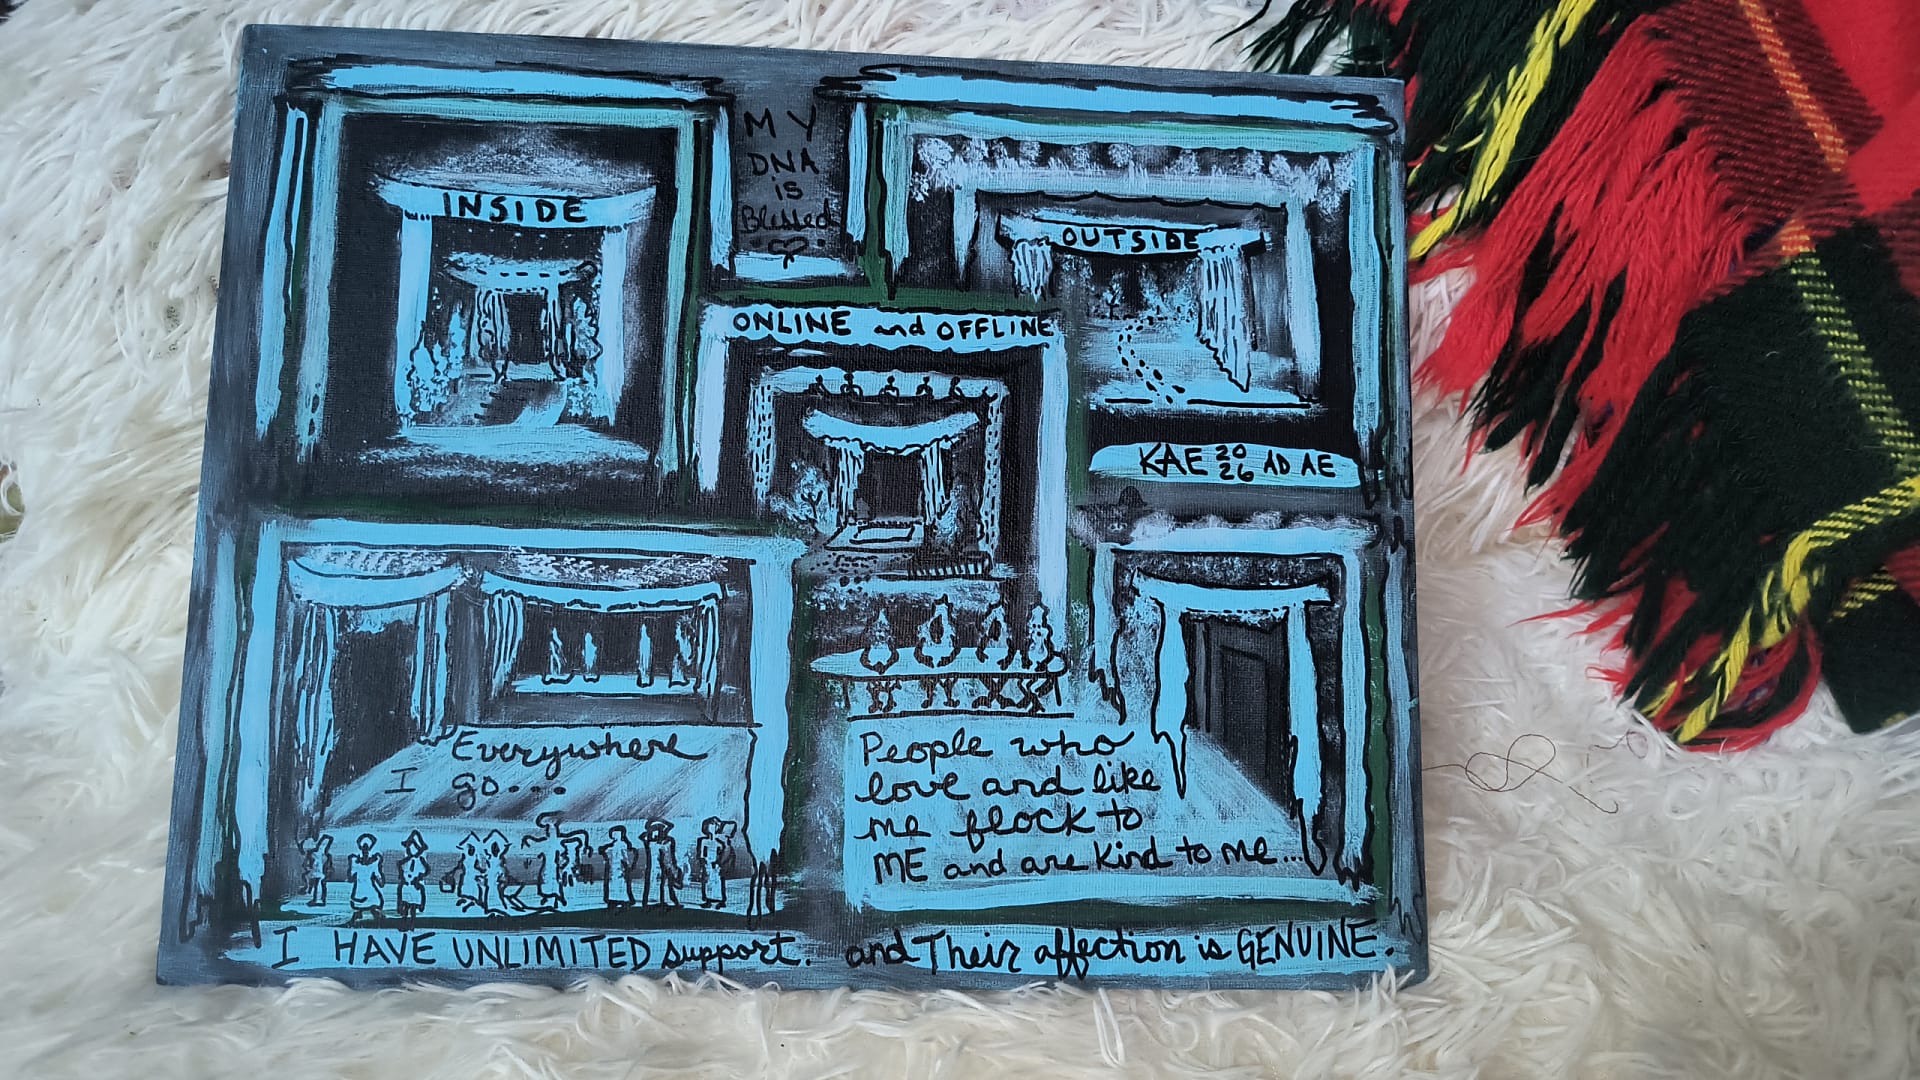 MY
DNA
is
Blessed
INSIDE
OUTSIDE
ONLINE and OFFLINE
KAE 2026 AD AE
Everywhere
I go...
People who
love and like
me flock to
ME and are kind to me...
I HAVE UNLIMITED support. and Their affection is GENUINE.